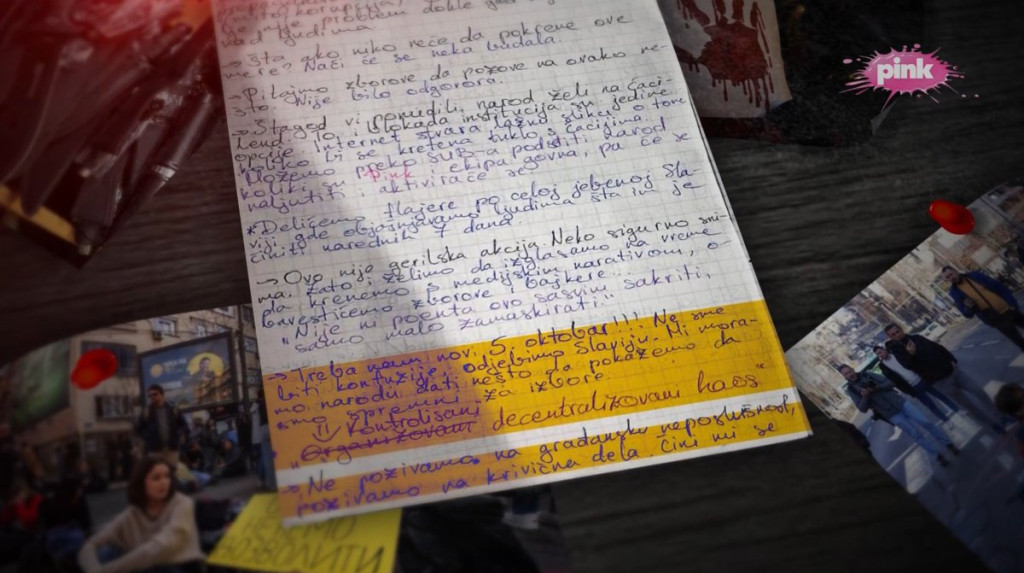 (mito, korupcija)
je nije problem dokle god
nad ljudima.
→ Šta ako niko neće da pokrene ove
mere? Naći će se neka budala.
→ Pitajmo zborove da pozove na ovako ne-
što. Nije bilo odgovora.
→ Štagod vi ponudili, narod želi na Ćaci-
lend. To, i blokada institucija su jedine
opcije. Internet stvara lažnu sliku o tome
koliko bi se kretena tuklo s ćacijima.
Možemo preko SUB-a podsititi narod
koliki su Pink i ekipa govna, pa će se
naljutiti i aktiviraće se
*Delićemo flajere po celoj jebenoj Sla-
viji gde objašnjavamo ljudima šta im je
činiti narednih 7 dana.
→ Ovo nije gerilska akcija. Neko sigurno sni-
ma. Zato želimo da izglasamo na vreme
da krenemo s medijskim narativom, o-
bavestićemo zborove i bajkere.
"Nije ni poenta ovo sasvim sakriti,
samo malo zamaskirati."
→ Treba nam novi 5. oktobar!!! Ne sme
biti konfuzije, odjebimo Slaviju. Mi mora-
mo narodu dati nešto da pokažemo da
smo spremni za izbore.
⇓ kontrolisani
"Organizovani decentralizovani haos"
→ Ne pozivamo na građansku neposlušnost,
pozivamo na krivična dela. Čini mi se
pink